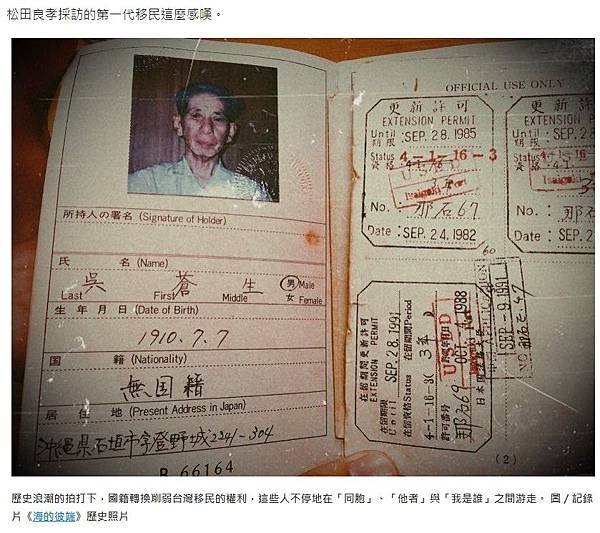 松田良孝採訪的第一代移民這麼感嘆。
所持人の署名 (Signature of Holder)
氏 名 (Name)
吳 蒼 生
Last First Middle
男 Male
女 Female
生 年 月 日 (Date of Birth)
1910.7.7
国 籍 (Nationality)
無国籍
居 住 地 (Present Address in Japan)
沖縄県石垣市字登野城2241-304
B 66164
OFFICIAL USE ONLY
更新許可
EXTENSION PERMIT
Until : SEP. 28. 1985
期限
Status 4-1-16-3
資格
3年
No. : 那石67
Date : SEP. 24. 1982
更新許可
EXTENSION PERMIT
Until : SEP. 2
期限
Status
資格
No. : 那石
Date : SEP. 2
在留期間更新許可
EXTENSION PERMIT
在留期限
Until : SEP. 28. 1991
在留資格Status 在留期間Period
4-1-16-3( 3年 )
許可年月日 OCT. -4. 1988
許可番号 那石69
USED
SEP. -9. 1991
(2)
歷史浪潮的拍打下，國籍轉換剝弱台灣移民的權利，這些人不停地在「同胞」、「他者」與「我是誰」之間游走。 圖／記錄
片《海的彼端》歷史照片